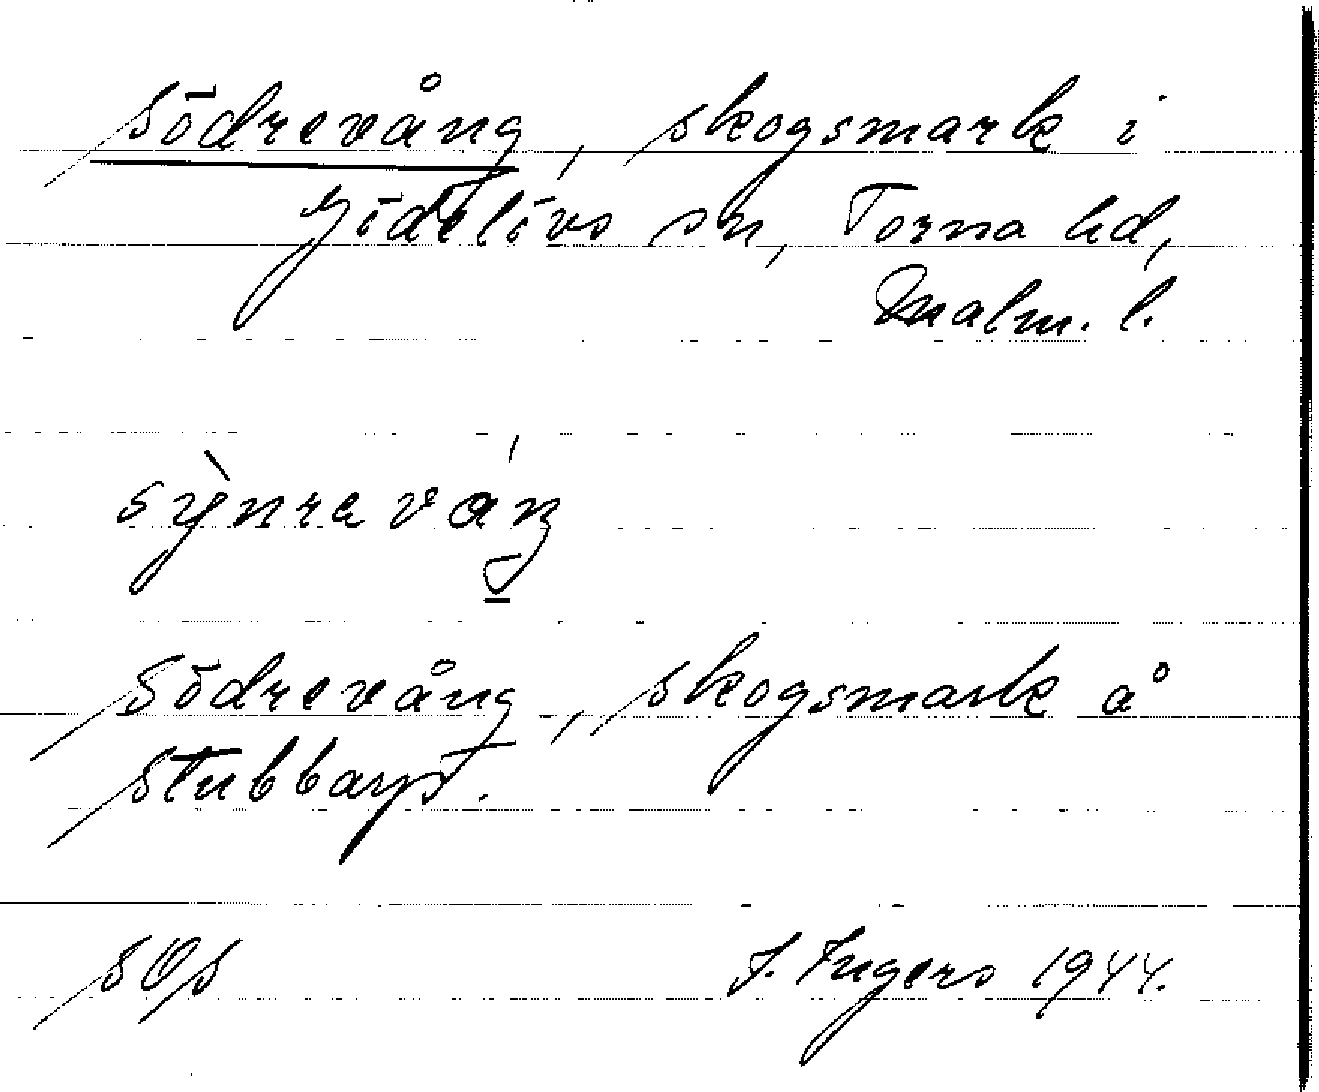 Södrevång, skogsmark i
Gödelövs sn, Torna hd,
Malm. l.
sỳnraváŋ
Södrevång, skogsmark å
Stubbarp.
SOS
I. Ingers 1944.